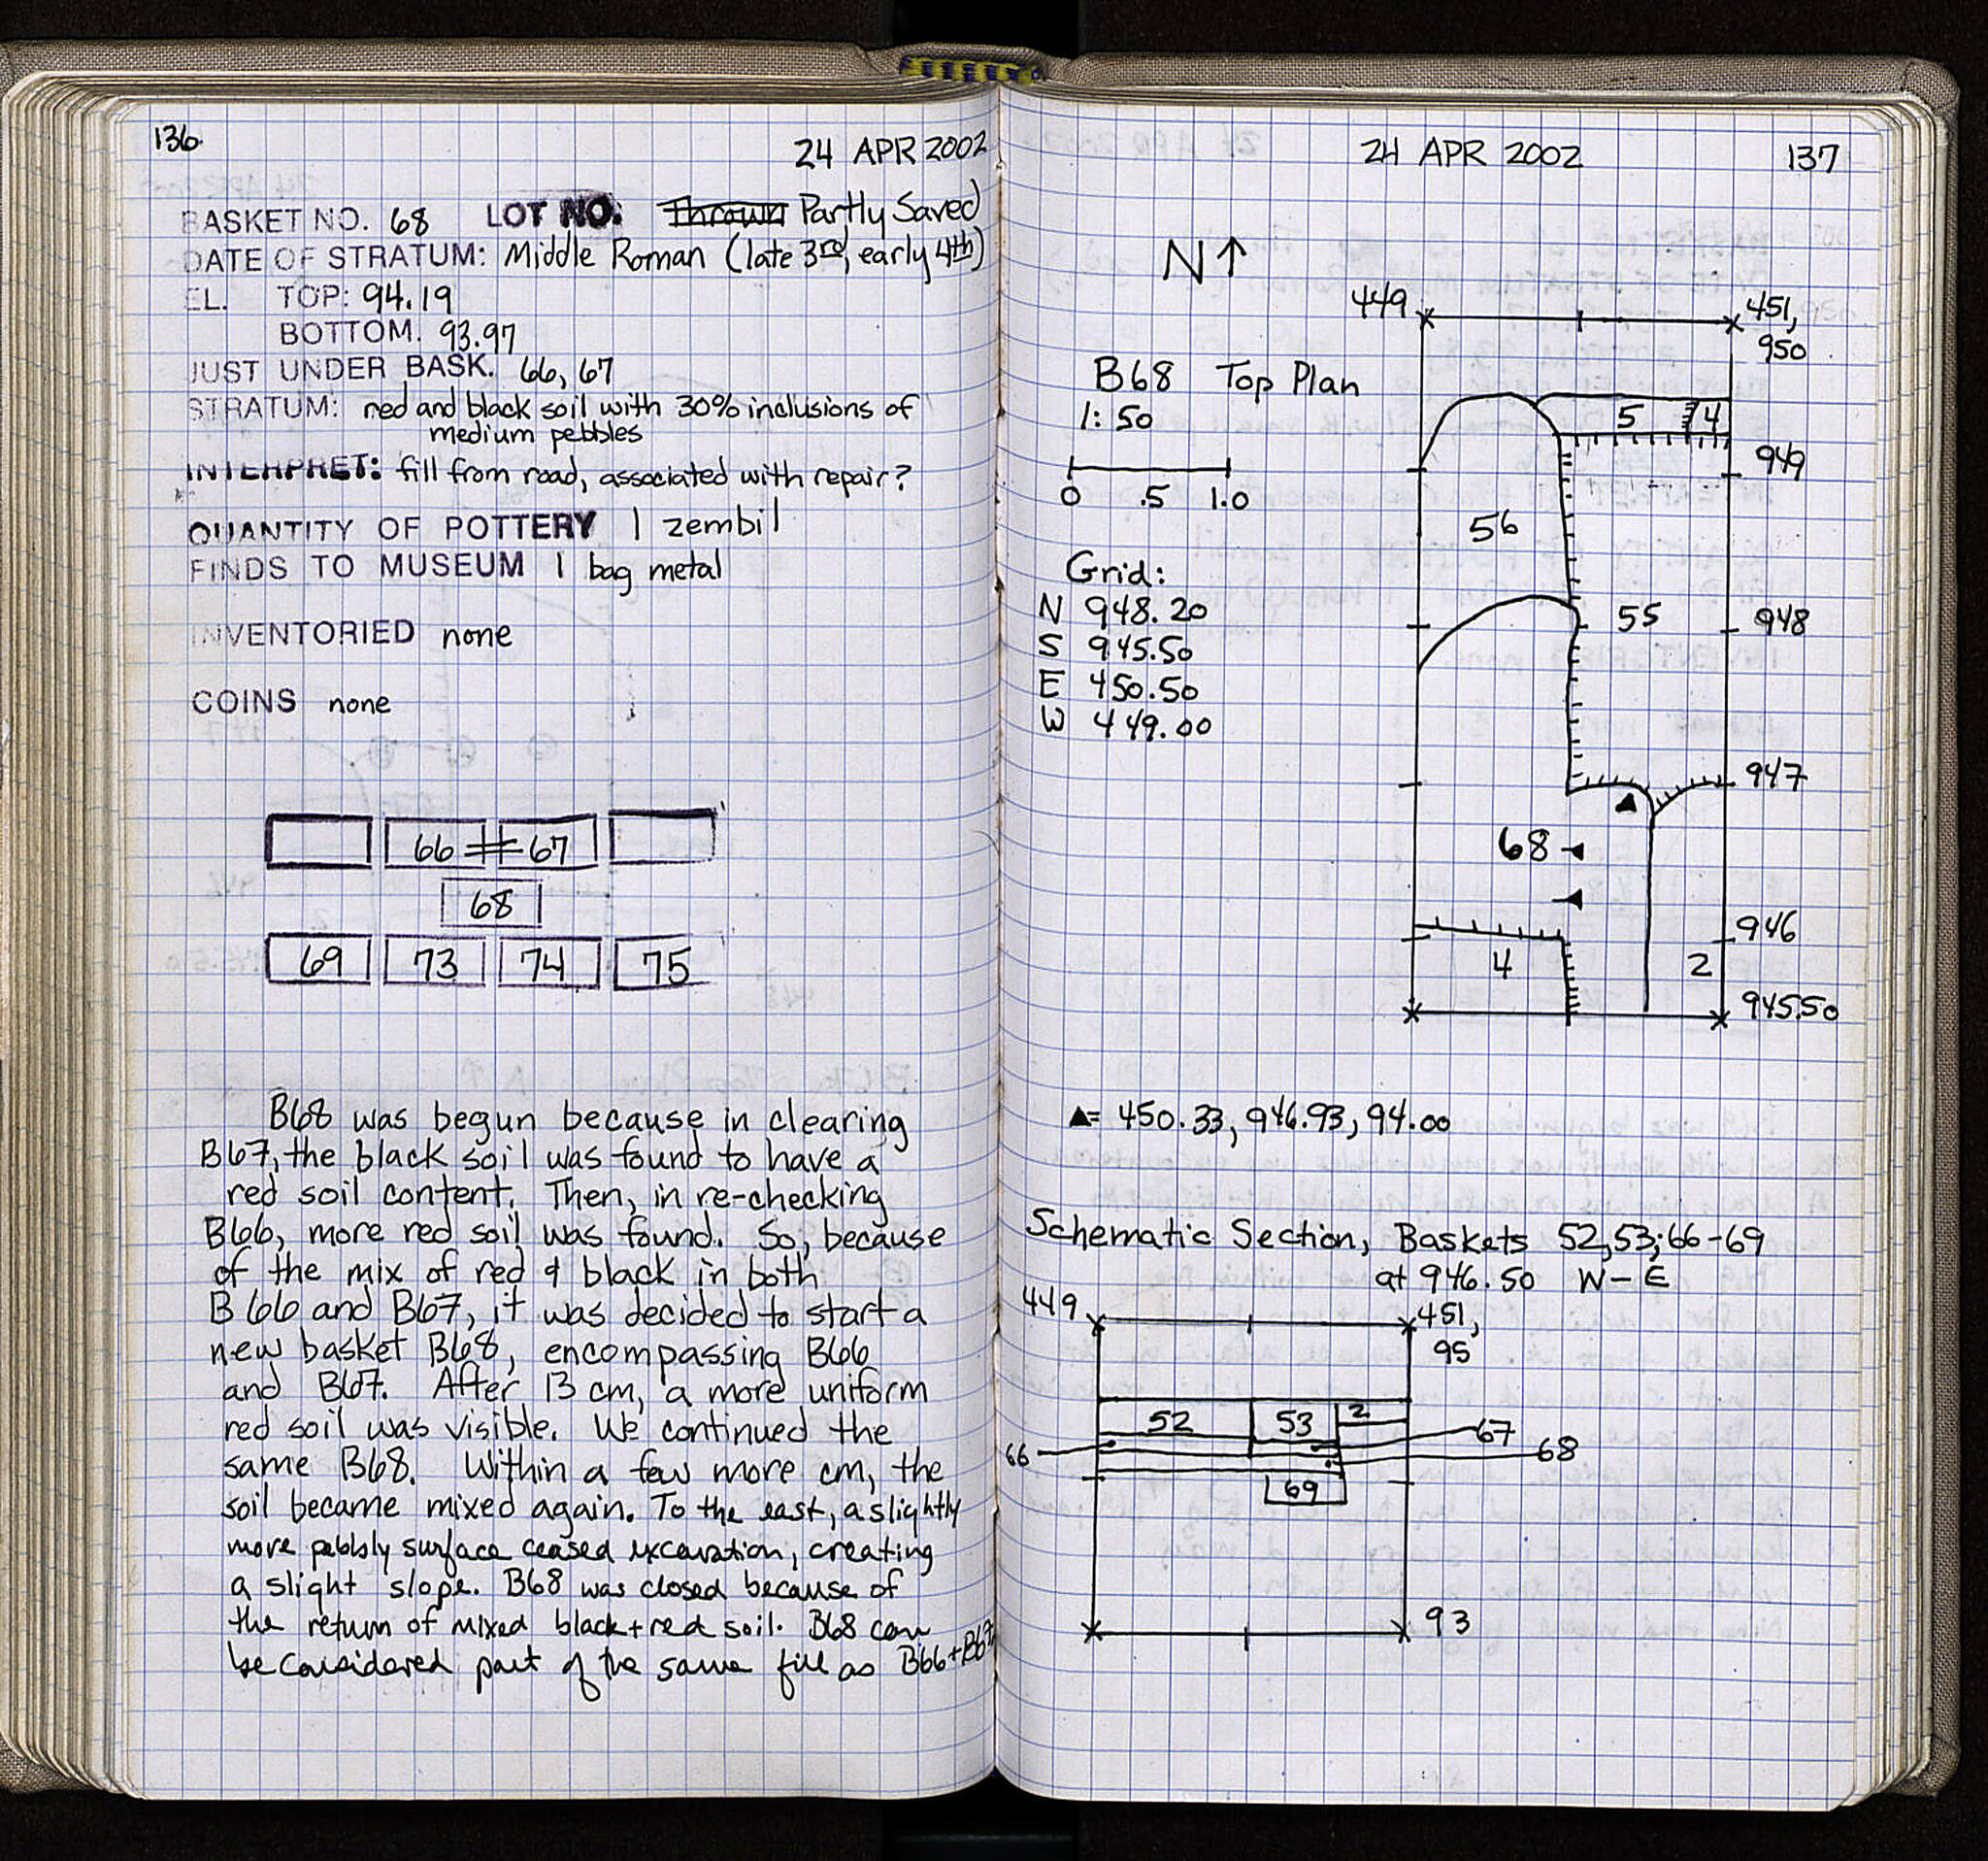 136
24 APR 2002
BASKET NO. 68 LOT NO. Thrown Partly Saved
DATE OF STRATUM: Middle Roman (late 3rd, early 4th)
EL. TOP: 94.19
BOTTOM. 93.97
JUST UNDER BASK. 66, 67
STRATUM: red and black soil with 30% inclusions of
medium pebbles
INTERPRET: fill from road, associated with repair?
QUANTITY OF POTTERY 1 zembil
FINDS TO MUSEUM 1 bag metal
INVENTORIED none
COINS none
66 67
68
69 73 74 75
B68 was begun because in clearing
B67, the black soil was found to have a
red soil content. Then, in re-checking
B66, more red soil was found. So, because
of the mix of red & black in both
B66 and B67, it was decided to start a
new basket B68, encompassing B66
and B67. After 13 cm, a more uniform
red soil was visible. We continued the
same B68. Within a few more cm, the
soil became mixed again. To the east, a slightly
more pebbly surface ceased excavation, creating
a slight slope. B68 was closed because of
the return of mixed black + red soil. B68 can
be considered part of the same fill as B66 + B67
24 APR 2002
137
N↑
449
451,
950
B68 Top Plan
1:50
0 .5 1.0
5 4
949
56
Grid:
N 948.20
S 945.50
E 450.50
W 449.00
55
948
947
68
946
4
2
945.50
▲= 450.33, 946.93, 94.00
Schematic Section, Baskets 52,53;66-69
at 946.50 W-E
449
451,
95
52 53 2
67
66
68
69
93